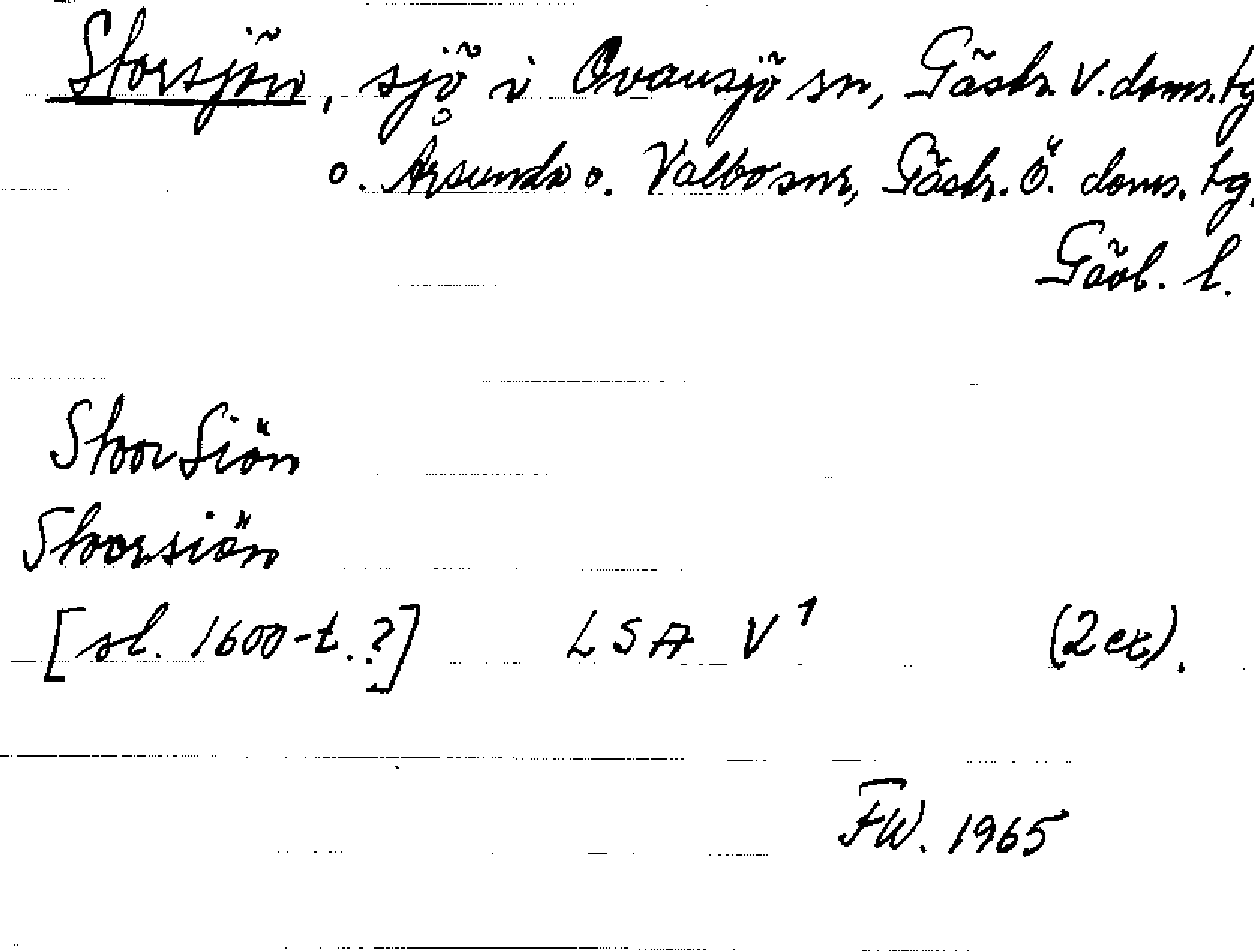 Storsjön, sjö i Ovansjö sn, Gästr. V. doms. tg
o. Årsunda o. Valbo snr, Gästr. Ö. doms. tg.
Gävl. l.
Stoor Siön
Stoorsiön
[sl. 1600-t.?] LSA V¹ (2 ex).
FW. 1965